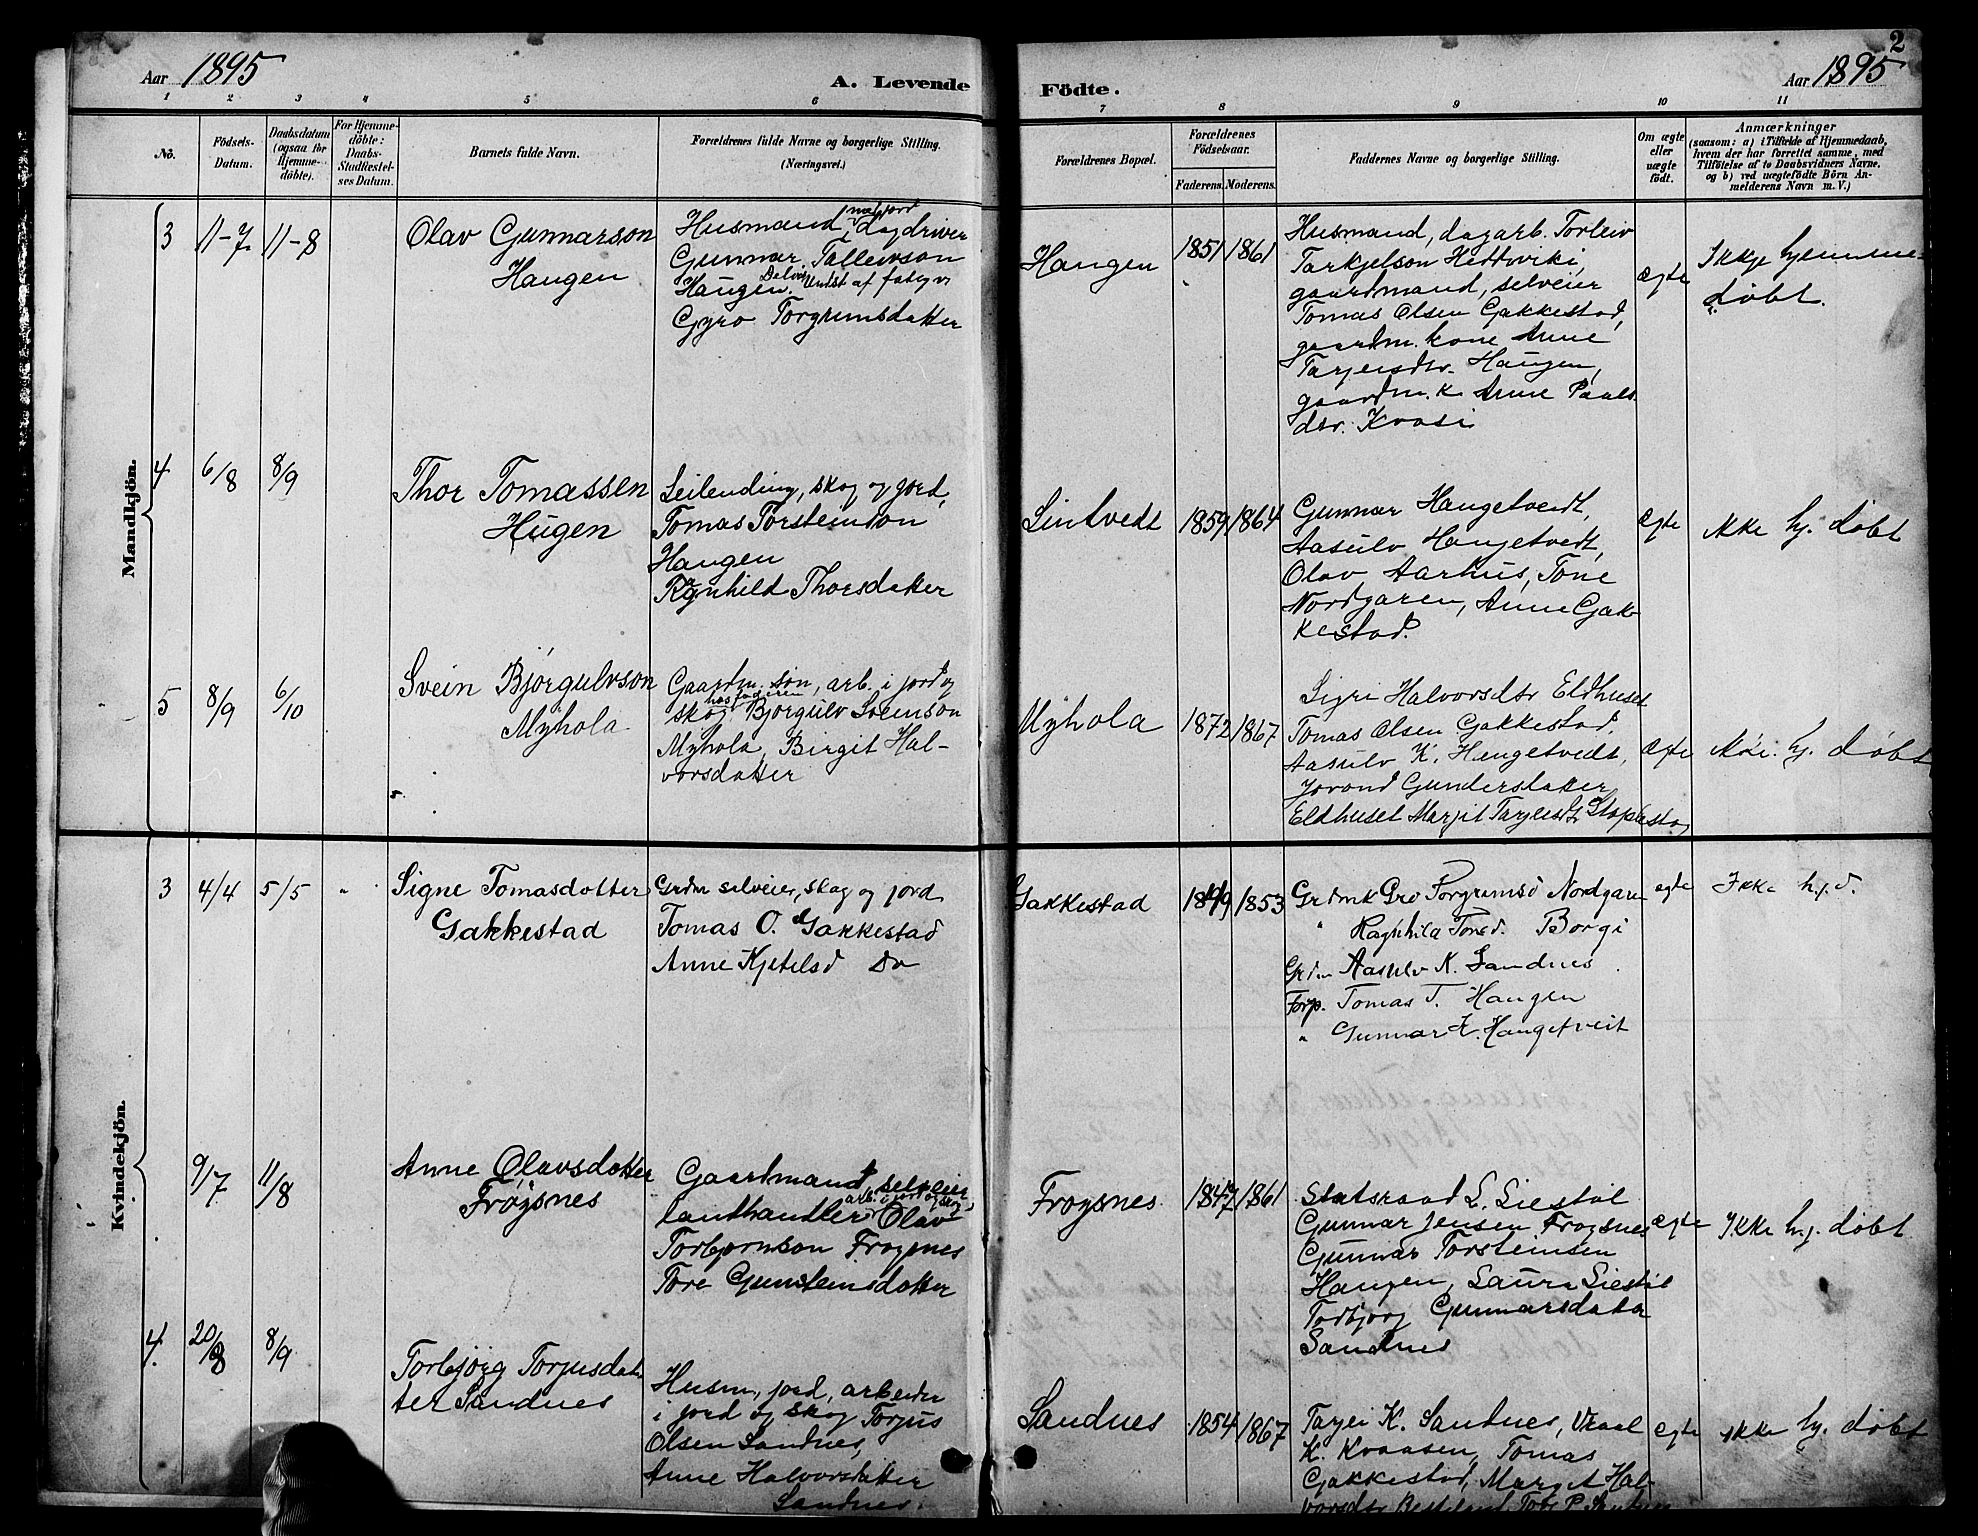 Aar 1895
A. Levende
Födte.
2
Aar 1895
1 2 3 4 5 6 7 8 9 10 11
No.
Födsels-
Datum.
Daabsdatum
(ogsaa for
Hjemme-
döbte).
For Hjemme-
döbte:
Daabs-
Stadfæstel-
ses Datum.
Barnets fulde Navn.
Forældrenes fulde Navne og borgerlige Stilling.
(Næringsvei.)
Forældrenes Bopæl.
Forældrenes
Födselsaar.
Faderens. Moderens.
Faddernes Navne og borgerlige Stilling.
Om ægte
eller
uægte
födt.
Anmærkninger
(saasom: a) i Tilfælde af Hjemmedaab,
hvem der har forrettet samme, med
Tilföielse af to Daabsvidners Navne,
og b) ved uægtefödte Börn An-
melderens Navn m. V.)
Mandkjön.
3
11-7
11-8
Olav Gunnarson
Haugen
Husmand, dagdriver
Gunnar Tallevson
Haugen. Delvis Undst af fatigv
Gyro Torgrimsdatter
Haugen
1851
1861
Husmand, dagarb. Torleiv
Tarkjelson Heddviki,
gaardmand, selveier
Tomas Olsen Gakkestad,
gaardm. kone Anne
Tarjeisdtr. Haugen,
gaardm. k Anne Paals
dtr. Kvasi
ægte
Ikkje hjemme-
døbt.
4
6/8
8/9
Thor Tomassen
Hugen
Leilending, skog og jord,
Tomas Torsteinson
Haugen
Ragnhild Thorsdatter
Lintvedt
1859
1864
Gunnar Haugetvedt,
Aasulv Haugetvedt,
Olav Aarhus, Tone
Nordgaren, Anne Gak-
kestad.
ægte
ikke hj. døbt
5
8/9
6/10
Svein Bjørgulvson
Myhola
Gaardm. søn, arb. i jord og
skog hos faderen Bjørgulv Sveinson
Myhola, Birgit Hal-
vorsdatter
Myhola
1872
1867
Sigri Halvorsdtr Eldhuset
Tomas Olsen Gakkestad,
Aasulv K. Haugetvedt,
Jorond Gundersdatter
Eldhuset Marjit Tarjeisdtr
ægte
hj. døbt
Kvindekjön.
3
4/4
5/5
"
Signe Tomasdotter
Gakkestad
Grdm selveier, skog og jord
Tomas O. Gakkestad
Anne Kjetelsd Do
Gakkestad
1849
1853
Grdmk Gro Torgrimsd Nordgaren
" Ragnhild Torsd. Borgi
Grdm Aasulv K. Sandnes
Forp. Tomas T. Haugen
" Gunnar K. Haugetveit
egte
Ikke h.j.d.
9/7
11/8
Anne Olavsdotter
Frøysnes
Gaardmand, selveier
arb. i jord og skog,
landhandler Olav
Torbjørnson Frøysnes
Tore Gunsteinsdotter
Frøysnes
1847
1861
Statsraad L. Liestøl
Gunnar Jensen Frøysnes
Gunnar Torsteinsen
Haugen, Laura Liestøl
Torbjørg Gunnarsdatter
Sandnes
ægte
Ikke h.j. døbt
4.
20/8
8/9
Torbjørg Torjusdat-
ter Sandnes
Husm, jord, arbeider
i jord og skog Torjus
Olsen Sandnes,
Anne Halvorsdatter
Sandnes.
Sandnes
1854
1867
Tarjei K. Sandnes,
K. Kvaasen, Tomas
Gakkestad, Margit Hal-
vorsdtr
egte
ikke hj. døbt